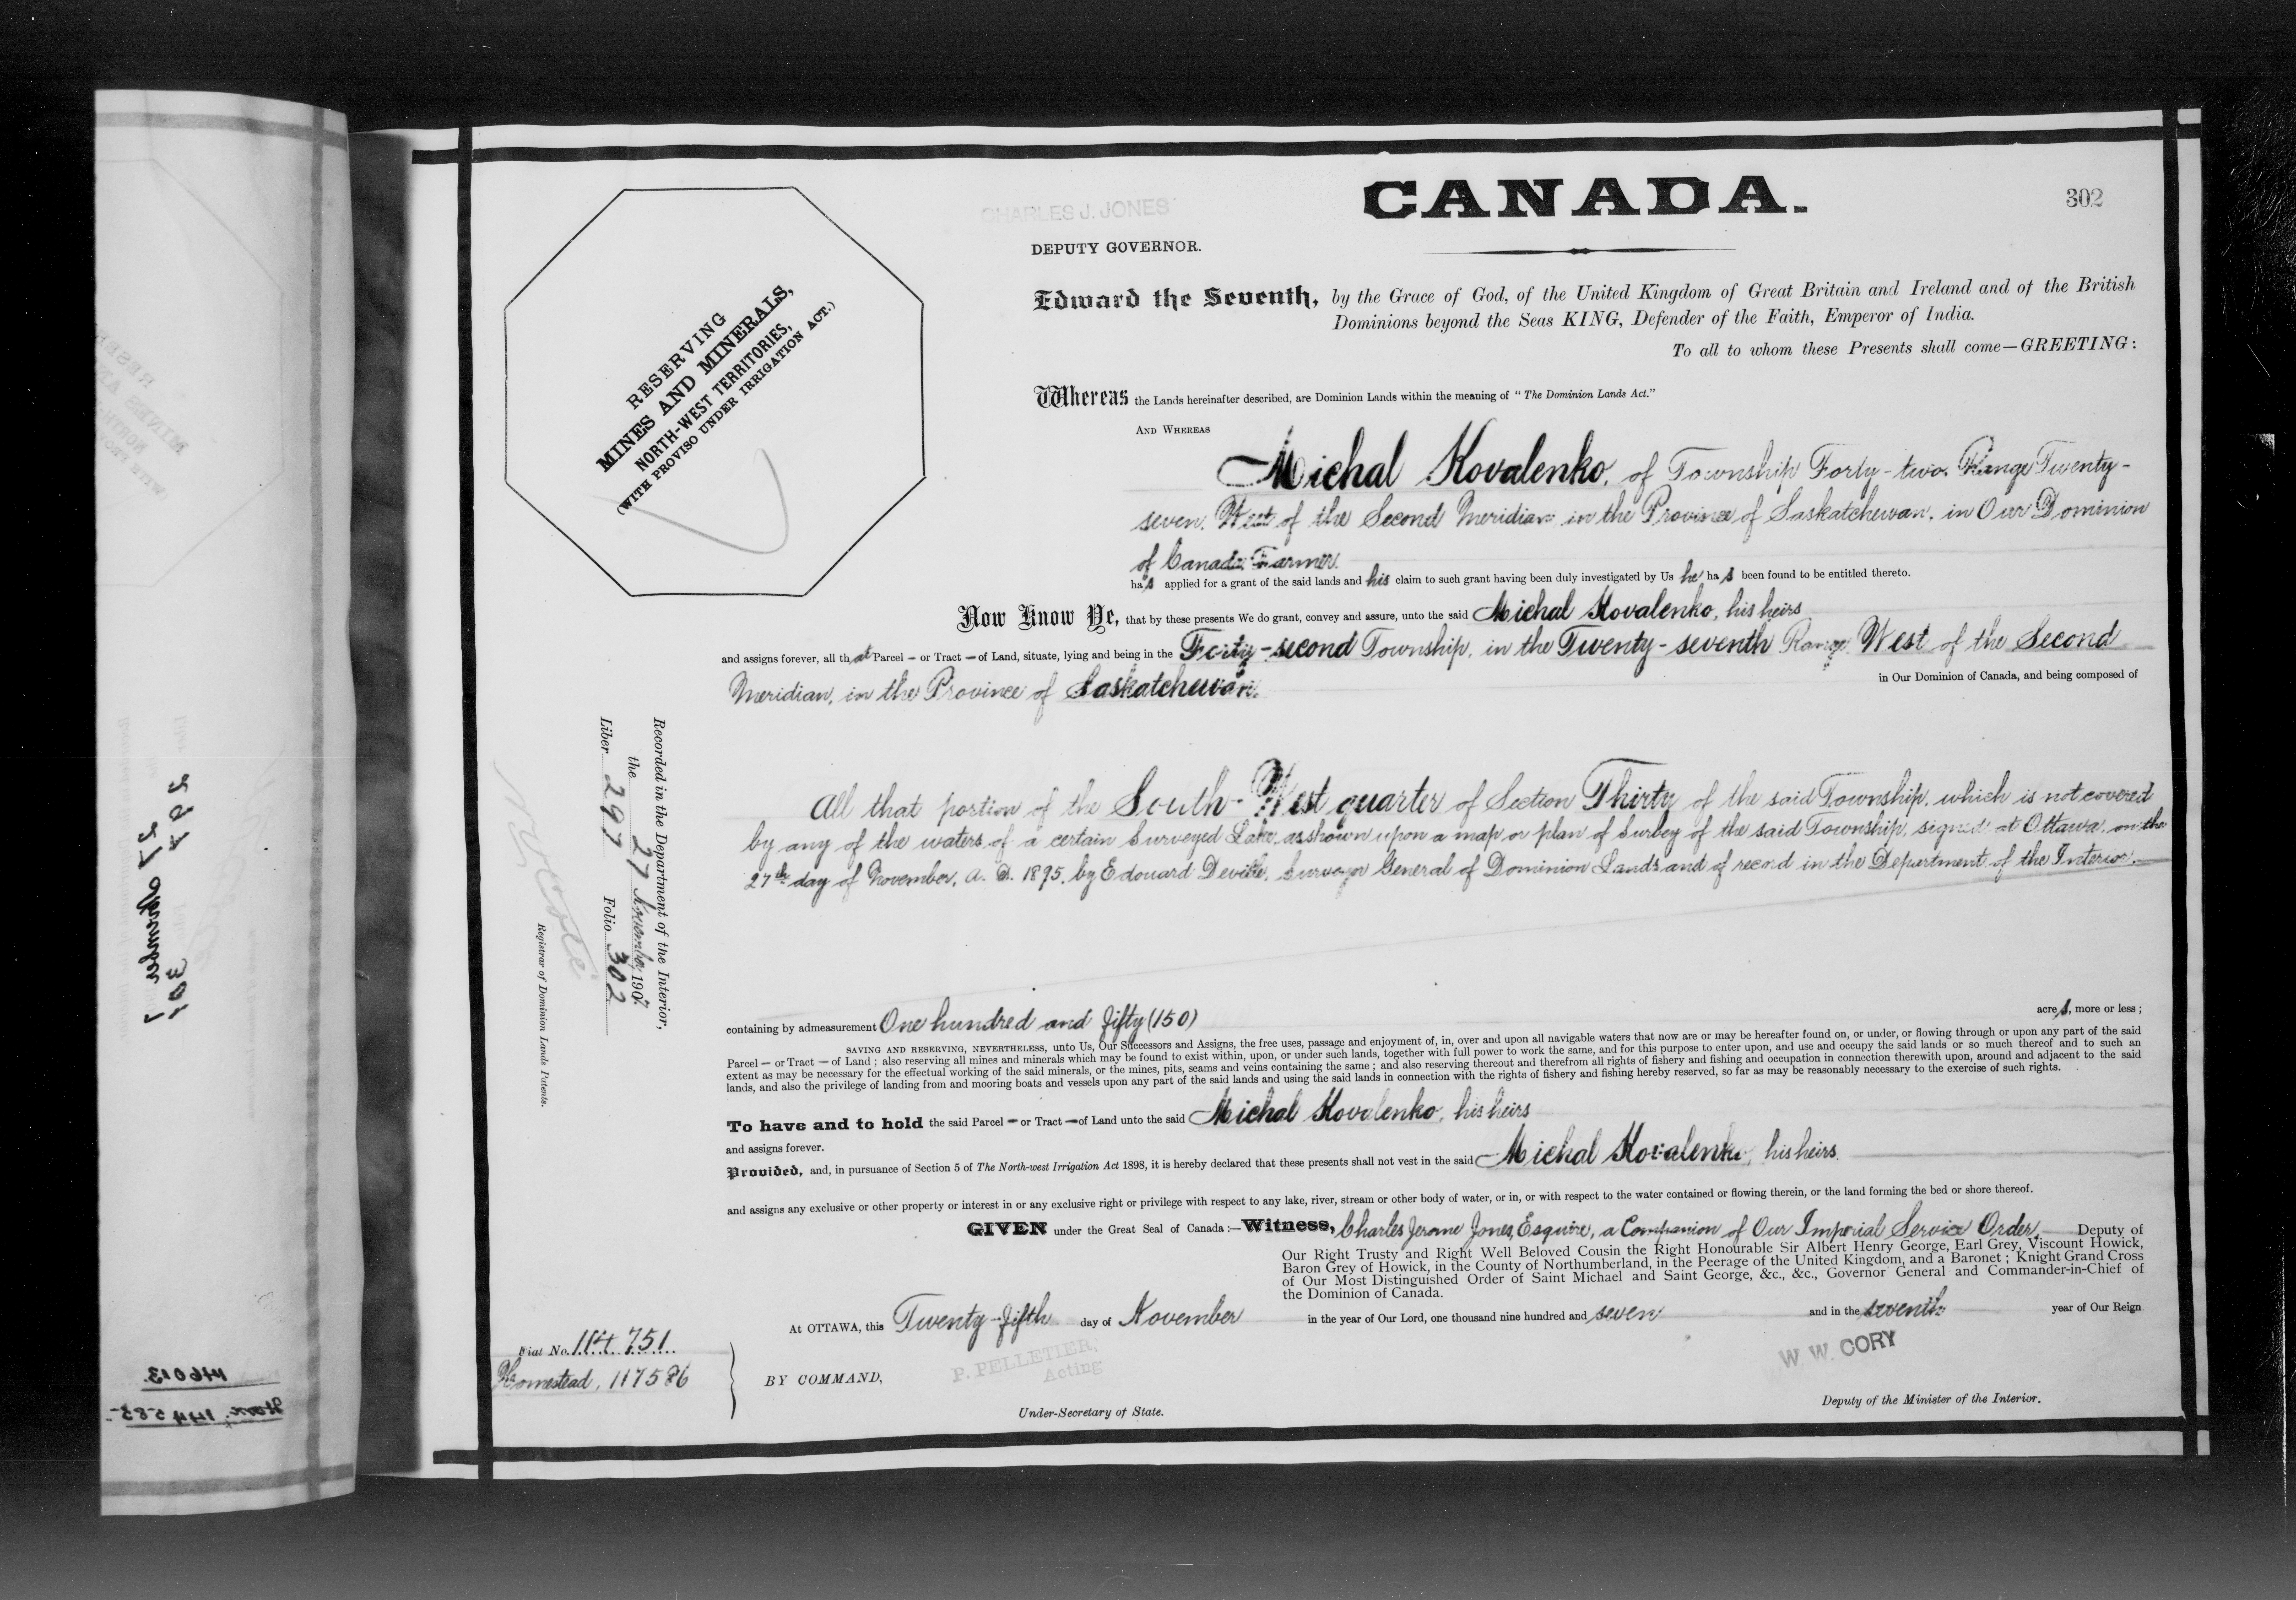 302
CANADA.
CHARLES J. JONES
DEPUTY GOVERNOR.
RESERVING
MINES AND MINERALS,
NORTH-WEST TERRITORIES,
(WITH PROVISO UNDER IRRIGATION ACT.)
Edward the Seventh, by the Grace of God, of the United Kingdom of Great Britain and Ireland and of the British
Dominions beyond the Seas KING, Defender of the Faith, Emperor of India.
To all to whom these Presents shall come—GREETING:
Whereas the Lands hereinafter described, are Dominion Lands within the meaning of "The Dominion Lands Act."
AND WHEREAS
Michal Kovalenko, of Township Forty-two, Range Twenty-
seven, West of the Second Meridian in the Province of Saskatchewan, in Our Dominion
of Canada, Farmer.
has applied for a grant of the said lands and his claim to such grant having been duly investigated by Us he has been found to be entitled thereto.
Now Know Ye, that by these presents We do grant, convey and assure, unto the said Michal Kovalenko, his heirs
and assigns forever, all that Parcel — or Tract — of Land, situate, lying and being in the Forty-second Township, in the Twenty-seventh Range West of the Second
Meridian, in the Province of Saskatchewan.
in Our Dominion of Canada, and being composed of
All that portion of the South-West quarter of Section Thirty of the said Township, which is not covered
by any of the waters of a certain Surveyed Lake, as shown upon a map or plan of Survey of the said Township, signed at Ottawa, on the
27th day of November, A. D. 1895, by Edouard Deville, Surveyor General of Dominion Lands and of record in the Department of the Interior.
containing by admeasurement One hundred and fifty (150) acres, more or less;
SAVING AND RESERVING, NEVERTHELESS, unto Us, Our Successors and Assigns, the free uses, passage and enjoyment of, in, over and upon all navigable waters that now are or may be hereafter found on, or under, or flowing through or upon any part of the said
Parcel — or Tract — of Land; also reserving all mines and minerals which may be found to exist within, upon, or under such lands, together with full power to work the same, and for this purpose to enter upon, and use and occupy the said lands or so much thereof and to such an
extent as may be necessary for the effectual working of the said minerals, or the mines, pits, seams and veins containing the same; and also reserving thereout and therefrom all rights of fishery and fishing and occupation in connection therewith upon, around and adjacent to the said
lands, and also the privilege of landing from and mooring boats and vessels upon any part of the said lands and using the said lands in connection with the rights of fishery and fishing hereby reserved, so far as may be reasonably necessary to the exercise of such rights.
To have and to hold the said Parcel — or Tract — of Land unto the said Michal Kovalenko, his heirs
and assigns forever.
Provided, and, in pursuance of Section 5 of The North-west Irrigation Act 1898, it is hereby declared that these presents shall not vest in the said Michal Kovalenko, his heirs
and assigns any exclusive or other property or interest in or any exclusive right or privilege with respect to any lake, river, stream or other body of water, or in, or with respect to the water contained or flowing therein, or the land forming the bed or shore thereof.
GIVEN under the Great Seal of Canada:—Witness, Charles Jerome Jones, Esquire, a Companion of Our Imperial Service Order, Deputy of
Our Right Trusty and Right Well Beloved Cousin the Right Honourable Sir Albert Henry George, Earl Grey, Viscount Howick,
Baron Grey of Howick, in the County of Northumberland, in the Peerage of the United Kingdom, and a Baronet; Knight Grand Cross
of Our Most Distinguished Order of Saint Michael and Saint George, &c., &c., Governor General and Commander-in-Chief of
the Dominion of Canada.
At OTTAWA, this Twenty-fifth day of November in the year of Our Lord, one thousand nine hundred and seven and in the seventh year of Our Reign
BY COMMAND,
P. PELLETIER,
Acting
Under-Secretary of State.
W. W. CORY
Deputy of the Minister of the Interior.
Fiat No. 114751
Homestead, 117586
Recorded in the Department of the Interior,
the 27 November 1907.
Liber 297 Folio 302
Registrar of Dominion Lands Patents.